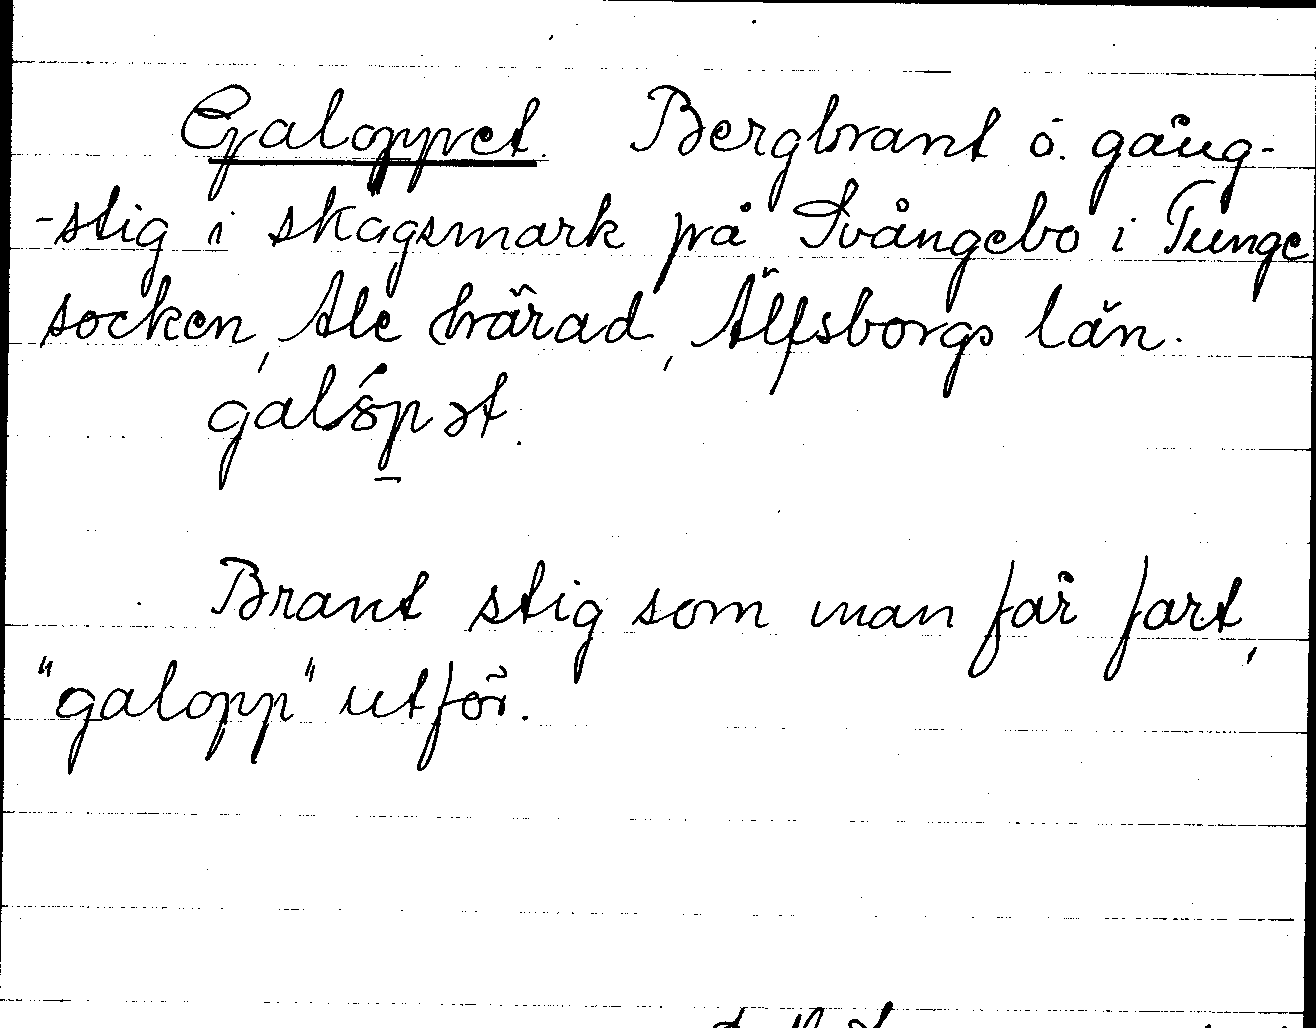 Galoppet. Bergbrant o. gång-
-stig i skogsmark på Svångebo i Tunge
socken, Ale härad, Älfsborgs län.
galópət.
Brant stig som man får fart,
"galopp" utför.